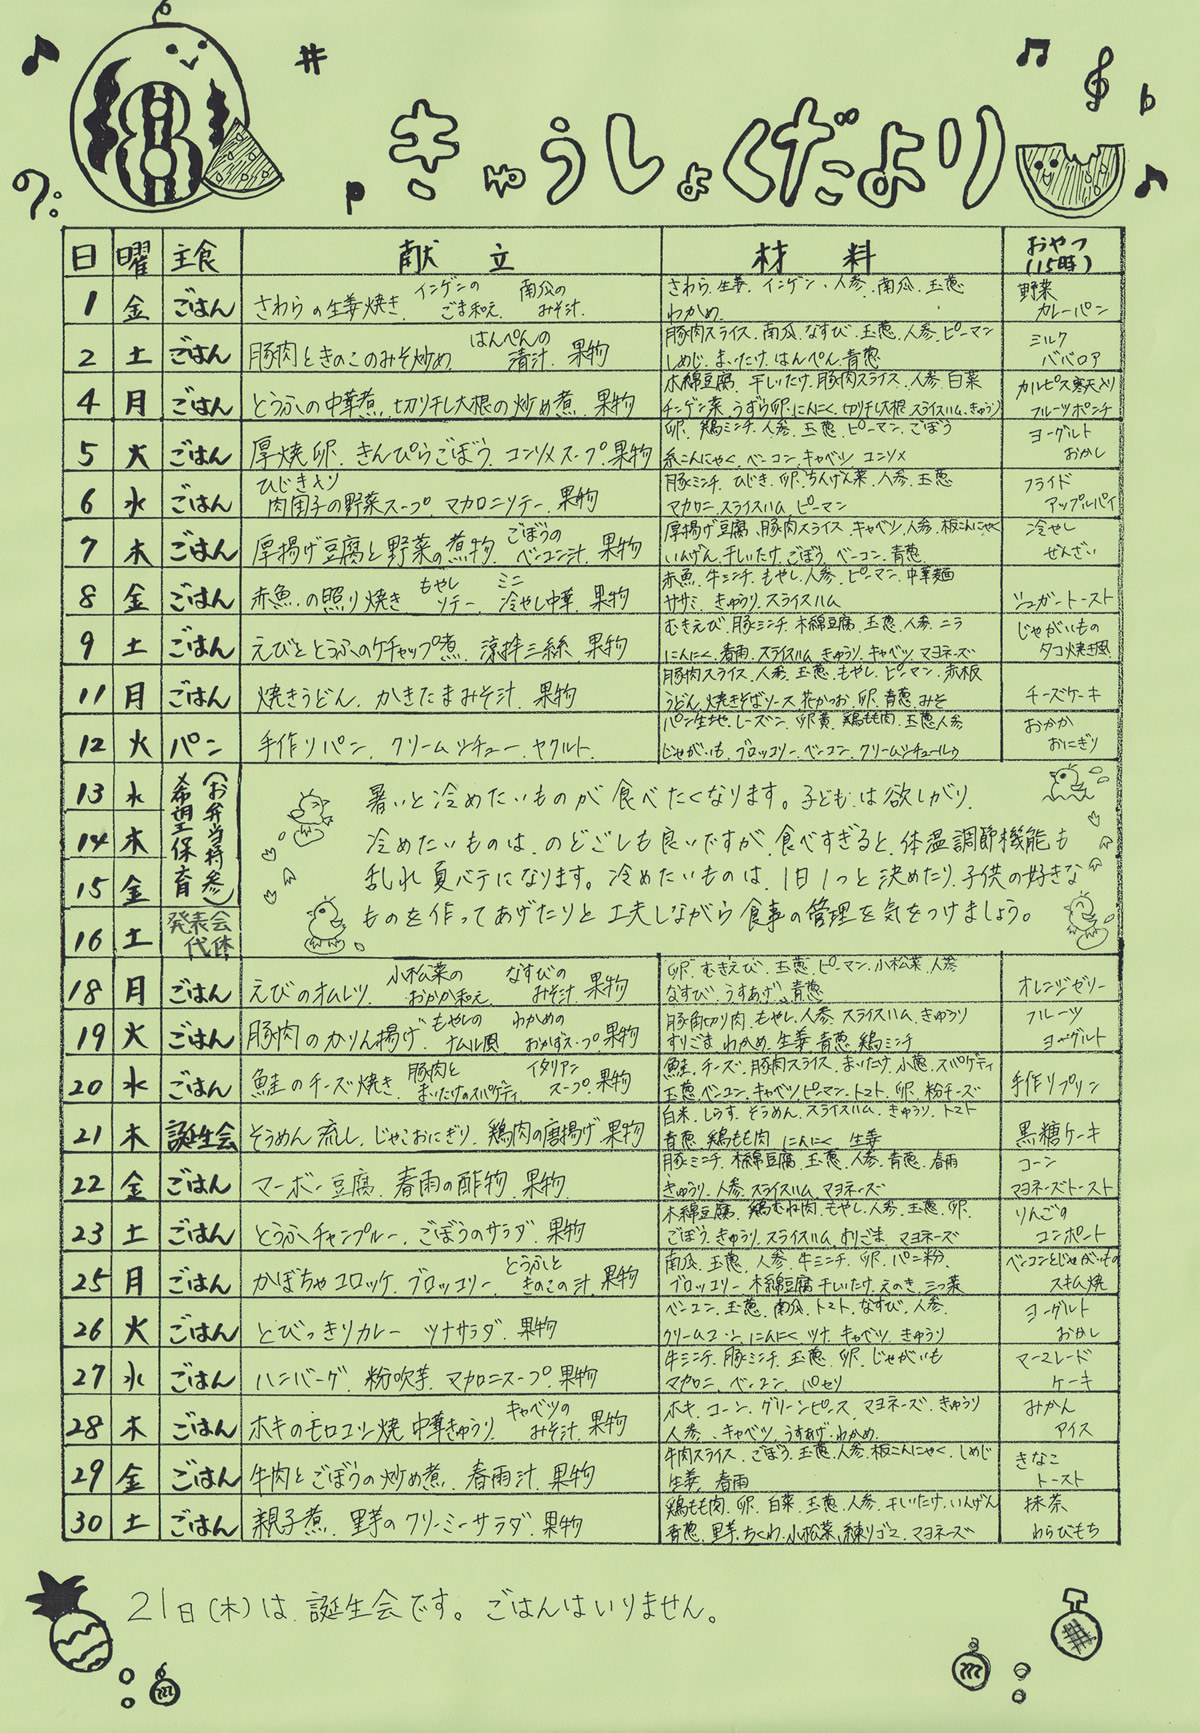 8
きゅうしょくだより
日 曜 主食 献立 材料 おやつ(15時)
1 金 ごはん さわらの生姜焼き、インゲンのごま和え、南瓜のみそ汁 さわら、生姜、インゲン、人参、南瓜、玉葱 わかめ 野菜カレーパン
2 土 ごはん 豚肉ときのこのみそ炒め、はんぺんの清汁、果物 豚肉スライス、南瓜、なすび、玉葱、人参、ピーマン しめじ、まいたけ、はんぺん、青葱 ミルクババロア
4 月 ごはん とうふの中華煮、切り干し大根の炒め煮、果物 木綿豆腐、干しいたけ、豚肉スライス、人参、白菜 チンゲン菜、うずら卵、にんにく、切り干し大根、スライスハム、きゅうり カルピス寒天入りフルーツポンチ
5 火 ごはん 厚焼卵、きんぴらごぼう、コンソメスープ、果物 卵、鶏ミンチ、人参、玉葱、ピーマン、ごぼう 糸こんにゃく、ベーコン、キャベツ、コンソメ ヨーグルト おかし
6 水 ごはん ひじき入り肉団子の野菜スープ マカロニソテー、果物 豚ミンチ、ひじき、卵、ちんげん菜、人参、玉葱 マカロニ、スライスハム、ピーマン フライドアップルパイ
7 木 ごはん 厚揚げ豆腐と野菜の煮物、ごぼうのベーコン汁、果物 厚揚げ豆腐、豚肉スライス、キャベツ、人参、板こんにゃく いんげん、干しいたけ、ごぼう、ベーコン、青葱 冷やしぜんざい
8 金 ごはん 赤魚の照り焼き もやしソテー、ミニ冷やし中華、果物 赤魚、牛ミンチ、もやし、人参、ピーマン、中華麺 ササミ、きゅうり、スライスハム シュガートースト
9 土 ごはん えびととうふのケチャップ煮、涼拌三絲、果物 むきえび、豚ミンチ、木綿豆腐、玉葱、人参、ニラ にんにく、春雨、スライスハム、きゅうり、キャベツ、マヨネーズ じゃがいものタコ焼き風
11 月 ごはん 焼きうどん、かきたまみそ汁、果物 豚肉スライス、人参、玉葱、もやし、ピーマン、赤板 うどん、焼きそばソース、花かつお、卵、青葱、みそ チーズケーキ
12 火 パン 手作りパン、クリームシチュー、ヤクルト パン生地、レーズン、卵黄、鶏もも肉、玉葱、人参 じゃがいも、ブロッコリー、ベーコン、クリームシチュールウ おかかおにぎり
13 水
14 木
15 金
希望保育(お弁当持参)
16 土 発表会代休
暑いと冷めたいものが食べたくなります。子どもは欲しがり、
冷めたいものは、のどごしも良いですが、食べすぎると、体温調節機能も
乱れ夏バテになります。冷めたいものは、1日1つと決めたり、子供の好きな
ものを作ってあげたりと工夫しながら食事の管理を気をつけましょう。
18 月 ごはん えびのオムレツ、小松菜のおかか和え、なすびのみそ汁、果物 卵、むきえび、玉葱、ピーマン、小松菜、人参 なすび、うすあげ、青葱 オレンジゼリー
19 火 ごはん 豚肉のかりん揚げ、もやしのナムル風、わかめのおかずスープ、果物 豚角切り肉、もやし、人参、スライスハム、きゅうり すりごま、わかめ、生姜、青葱、鶏ミンチ フルーツヨーグルト
20 水 ごはん 鮭のチーズ焼き、豚肉とまいたけのスパゲティ、イタリアンスープ、果物 鮭、チーズ、豚肉スライス、まいたけ、小葱、スパゲティ 玉葱、ベーコン、キャベツ、ピーマン、トマト、卵、粉チーズ 手作りプリン
21 木 誕生会 そうめん流し、じゃこおにぎり、鶏肉の唐揚げ、果物 白米、しらす、そうめん、スライスハム、きゅうり、トマト 青葱、鶏もも肉、にんにく、生姜 黒糖ケーキ
22 金 ごはん マーボー豆腐、春雨の酢物、果物 豚ミンチ、木綿豆腐、玉葱、人参、青葱、春雨 きゅうり、人参、スライスハム、マヨネーズ コーンマヨネーズトースト
23 土 ごはん とうふチャンプルー、ごぼうのサラダ、果物 木綿豆腐、鶏むね肉、もやし、人参、玉葱、卵 ごぼう、きゅうり、スライスハム、すりごま、マヨネーズ りんごのコンポート
25 月 ごはん かぼちゃコロッケ、ブロッコリー、とうふときのこの汁、果物 南瓜、玉葱、人参、牛ミンチ、卵、パン粉 ブロッコリー、木綿豆腐、干しいたけ、えのき、三つ葉 ベーコンとじゃがいものスキム焼
26 火 ごはん とびっきりカレー、ツナサラダ、果物 ベーコン、玉葱、南瓜、トマト、なすび、人参 クリームコーン、にんにく、ツナ、キャベツ、きゅうり ヨーグルト おかし
27 水 ごはん ハンバーグ、粉吹芋、マカロニスープ、果物 牛ミンチ、豚ミンチ、玉葱、卵、じゃがいも マカロニ、ベーコン、パセリ マーマレードケーキ
28 木 ごはん ホキのモロコシ焼、中華きゅうり、キャベツのみそ汁、果物 ホキ、コーン、グリーンピース、マヨネーズ、きゅうり 人参、キャベツ、うすあげ、わかめ みかんアイス
29 金 ごはん 牛肉とごぼうの炒め煮、春雨汁、果物 牛肉スライス、ごぼう、玉葱、人参、板こんにゃく、しめじ 生姜、春雨 きなこトースト
30 土 ごはん 親子煮、里芋のクリーミーサラダ、果物 鶏もも肉、卵、白菜、玉葱、人参、干しいたけ、いんげん 青葱、里芋、ちくわ、小松菜、練りゴマ、マヨネーズ 抹茶わらびもち
21日(木)は、誕生会です。ごはんはいりません。